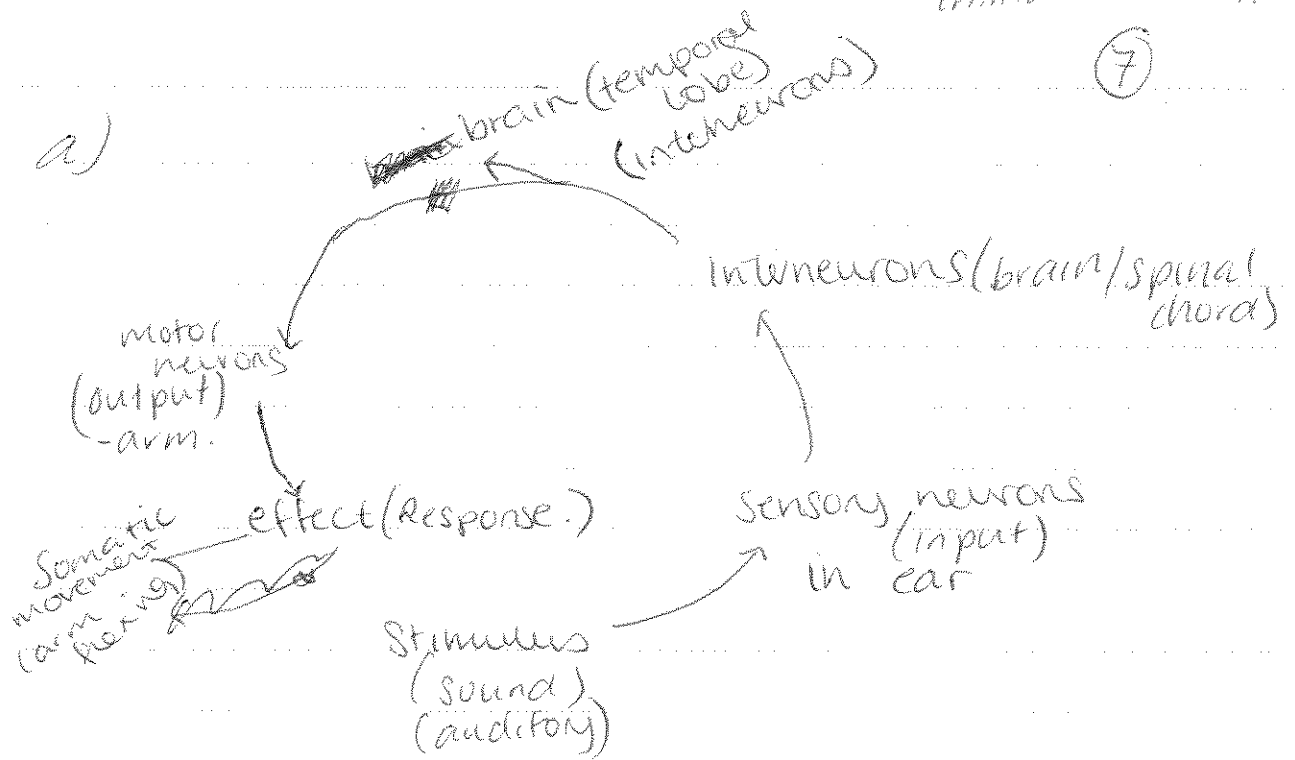 7
a)
brain (temporal
lobe)
(interneurons)
Interneurons (brain/spinal
chord)
motor
neurons
(output)
-arm.
effect (Response.)
Somatic
movement
(arm
Sensory neurons
(input)
in ear
Stimulus
(sound)
(auditory)